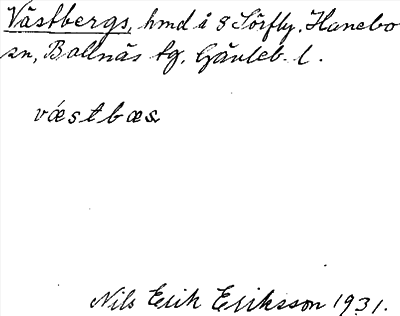 Västbergs, hmd å 8 Sörfly, Hanebo
sn, Bollnäs tg, Gävleb. l.
væstbæs
Nils Erik Eriksson 1931.